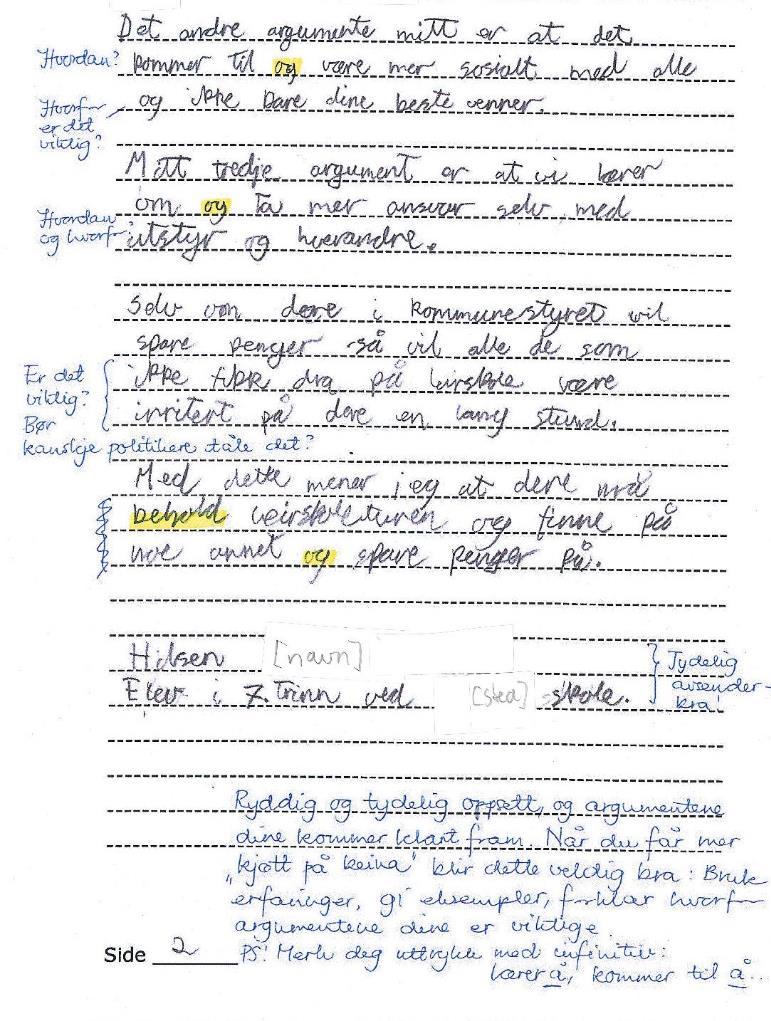 Det andre argumente mitt er at det
Hvordan?
kommer til og være mer sosialt med alle
Hvorfor er det viktig?
og ikke bare dine beste venner.
Mitt tredje argument er at vi lærer
om og ta mer ansvar selv, med
Hvordan og hvorfor?
utstyr og hverandre.
Selv om dere i kommunestyret vil
spare penger så vil alle de som
Er det
viktig?
Bør
kanskje politikere tåle det?
ikke fikk dra på leirskole være
irritert på dere en lang stund.
Med dette mener jeg at dere må
behold leirskoleturen og finne på
noe annet og spare penger på.
Hilsen [navn]
Elev i 7. trinn ved [sted] skole.
Tydelig
avsender-
bra!
Ryddig og tydelig oppsett, og argumentene
dine kommer klart fram. Når du får mer
"kjøtt på beina" blir dette veldig bra: Bruk
erfaringer, gi eksempler, forklar hvorfor
argumentene dine er viktige.
Side 2
PS! Merk deg uttrykk med infinitiv:
lærer å, kommer til å..